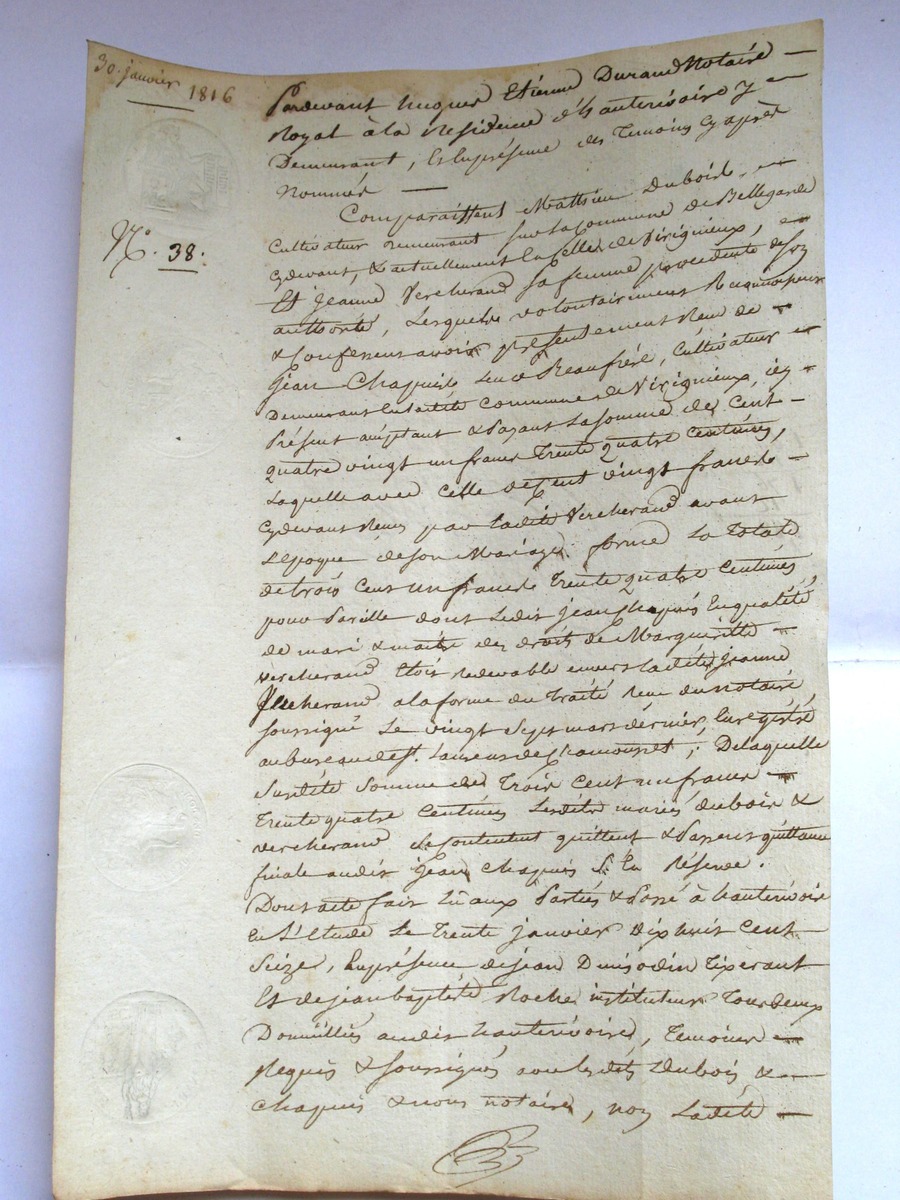 30. janvier 1816
N.° 38.
Pardevant hugues Etienne Durand Notaire
Royal à la Residence d'hauterivoire y
Demeurant, & En présence des Temoins cy après
nommés
Comparaissent Mathieu Dubois
Cultivateur demeurant sur la Commune de Bellegarde
cydevant, & actuellement En Celle de Virignieux,
Et Jeanne Vercherand sa femme procedente de son
authorité, Lesquels volontairement Reconnoissent
& Confessent avoir présentement Reçu de
jean Chapuis Leur Beaufrère, Cultivateur
Demeurant En ladite commune de Virignieux, icy
Présent acceptant & Payant La somme de Cent
quatre vingt un francs trente quatre centimes,
Laquelle avec Celle de Cent vingt francs
cydevant Reçus par ladite Vercherand avant
L'epoque de son Mariage forme La totale
de trois Cent un francs Trente quatre Centimes,
pour Pareille dont Ledit jean Chapuis En qualité
de mari & maitre des droits de Marguerite
Vercherand Etoit redevable envers ladite jeanne
Vercherand a la forme du traité Reçu du notaire
soussigné Le vingt Sept mars dernier, Enregistré
au bureau de St. Laurent de Chamousset ; De laquelle
Susdite Somme de Trois Cent un francs
trente quatre Centimes Lesdits mariés dubois &
vercherand se Contentent quittent & Passent quittance
finale audit jean Chapuis Réserve.
Dont acte fait Lû aux Parties & Passé à hauterivoire
En L'Etude Le Trente janvier dix huit Cent
Seize, En présence de jean Tixerant
Et de jean baptiste Roche instituteur Tous deux
Domiciliés audit hauterivoire, Temoins
Requis & soussignés avec lesdits Dubois &
chapuis & nous notaire, non Ladite